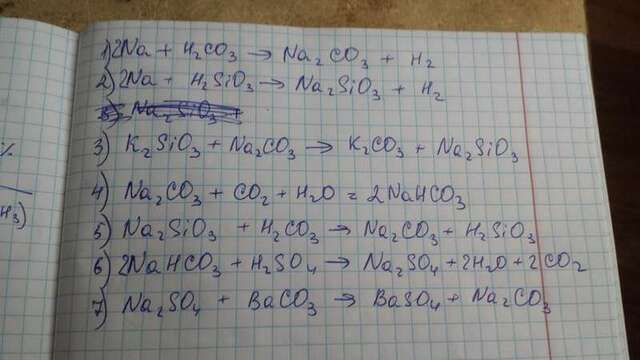 1) 2Na + H₂CO₃ → Na₂CO₃ + H₂
2) 2Na + H₂SiO₃ → Na₂SiO₃ + H₂
3) K₂SiO₃ + Na₂CO₃ → K₂CO₃ + Na₂SiO₃
%
4) Na₂CO₃ + CO₂ + H₂O = 2NaHCO₃
H₃)
5) Na₂SiO₃ + H₂CO₃ → Na₂CO₃ + H₂SiO₃
6) 2NaHCO₃ + H₂SO₄ → Na₂SO₄ + 2H₂O + 2CO₂
7) Na₂SO₄ + BaCO₃ → BaSO₄ + Na₂CO₃